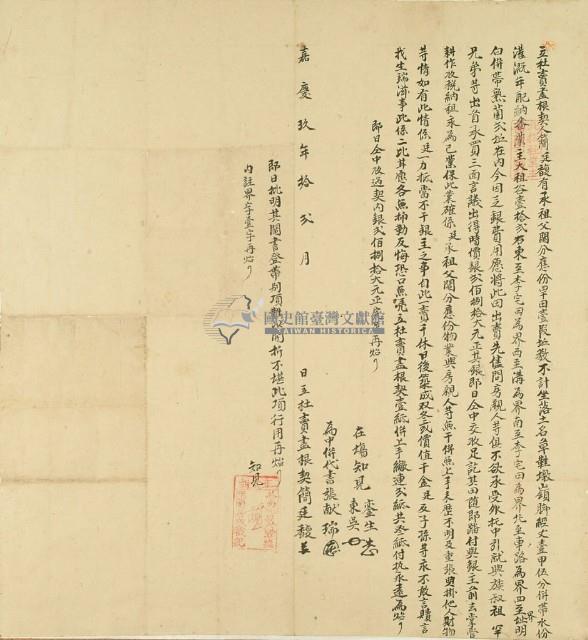 立杜賣盡根契人簡廷馥有承祖父鬮分應份旱田壹段址數不計坐落土名草鞋墩山嶺脚經丈壹甲伍分併帶水份
灌溉年配納番業主大租谷壹拾弍石東至李宅田為界西至溝為界南至李宅田為界北至車路為界四至址明
白併帶熟菌弍坵在內今因乏銀費用應將此田出賣先儘問房親人等俱不欲承受外托中引就與族叔祖罕
兄弟等出首承買三面言議出得時價銀弍佰捌拾大元正其銀即日仝中交收足訖其田隨即踏付與銀主前去掌管
耕作收稅納租永為己業保此業確係廷承祖父鬮分應份物業與房親人等無干併無上手來歷不明及重張典掛他人財物
等情如有此情係廷一力抵當不干銀主之事自此一賣千休日後築成双冬或價值千金廷及子孫等永不敢言贖言
找生端滋事此係二比甘愿各無抑勒反悔恐口無憑立杜賣盡根契壹紙併上手繳連弍紙共叁紙付执永遠為炤
即日仝中收過契內銀弍佰捌拾大元正完足再炤
在場知見
為中併代書張献瑞
嘉慶玖年拾弍月 日立杜賣盡根契簡廷馥
即日批明其鬮書登帶別項物業開折不堪此項行用再炤
內註界字壹字再炤
知見
國史館臺灣文獻館
TAIWAN HISTORICA